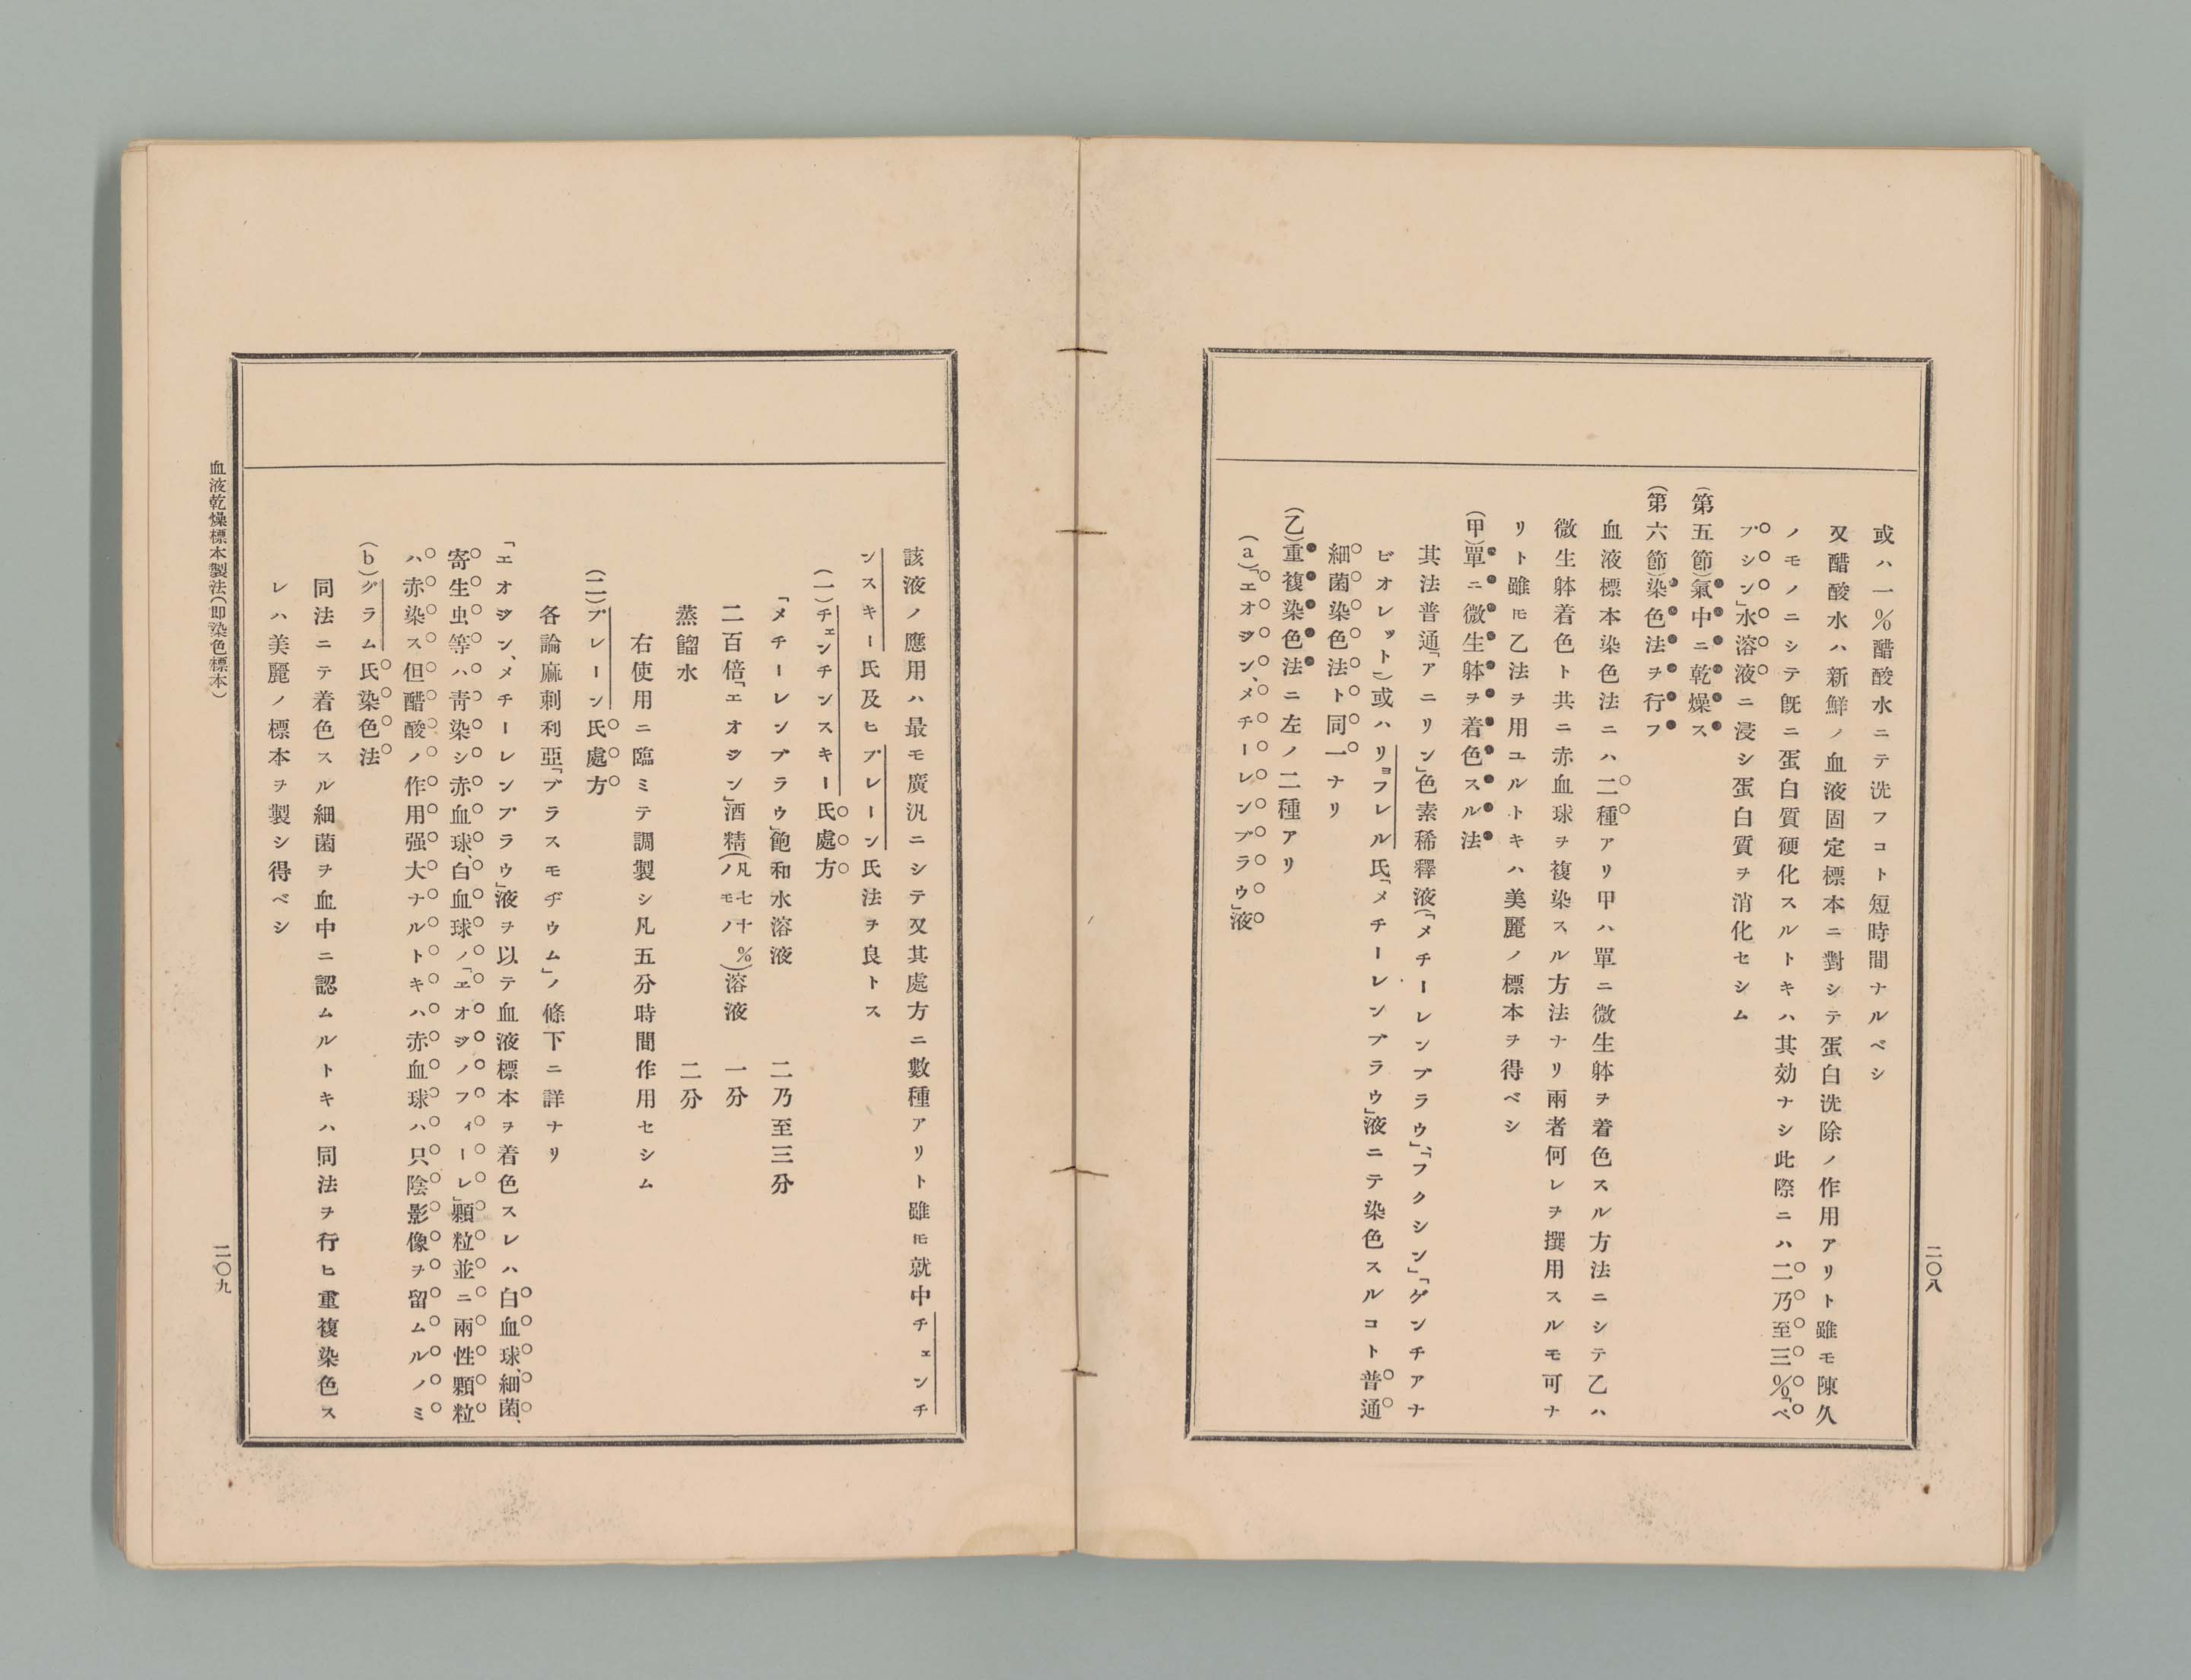 或ハ一%醋酸水ニテ洗フコト短時間ナルベシ
又醋酸水ハ新鮮ノ血液固定標本ニ對シテ蛋白洗除ノ作用アリト雖モ陳久
ノモノニシテ旣ニ蛋白質硬化スルトキハ其効ナシ此際ニハ二乃至三%「ペ
プシン」水溶液ニ浸シ蛋白質ヲ消化セシム
(第五節)氣中ニ乾燥ス
(第六節)染色法ヲ行フ
血液標本染色法ニハ二種アリ甲ハ單ニ微生躰ヲ着色スル方法ニシテ乙ハ
微生躰着色ト共ニ赤血球ヲ複染スル方法ナリ兩者何レヲ撰用スルモ可ナ
リト雖𪜈乙法ヲ用ユルトキハ美麗ノ標本ヲ得ベシ
(甲)單ニ微生躰ヲ着色スル法
其法普通「アニリン」色素稀釋液(「メチーレンブラウ」、「フクシン」「ゲンチアナ
ビオレット」)或ハリョフレル氏「メチーレンブラウ」液ニテ染色スルコト普通
細菌染色法ト同一ナリ
(乙)重複染色法ニ左ノ二種アリ
(a)「エオジン、メチーレンブラウ」液
二〇八
該液ノ應用ハ最モ廣汎ニシテ又其處方ニ數種アリト雖𪜈就中チェンチ
ンスキー氏及ヒプレーン氏法ヲ良トス
(一)チェンチンスキー氏處方
「メチーレンブラウ」飽和水溶液 二乃至三分
二百倍「エオジン」酒精(凡七十%ノモノ)溶液 一分
蒸餾水 二分
右使用ニ臨ミテ調製シ凡五分時間作用セシム
(二)プレーン氏處方
各論麻刺利亞「プラスモヂウム」ノ條下ニ詳ナリ
「エオジン、メチーレンブラウ」液ヲ以テ血液標本ヲ着色スレハ白血球、細菌、
寄生虫等ハ靑染シ赤血球、白血球ノ「エオジノフィーレ」顆粒並ニ兩性顆粒
ハ赤染ス但醋酸ノ作用强大ナルトキハ赤血球ハ只陰影像ヲ留ムルノミ
(b)グラム氏染色法
同法ニテ着色スル細菌ヲ血中ニ認ムルトキハ同法ヲ行ヒ重複染色ス
レハ美麗ノ標本ヲ製シ得ベシ
血液乾燥標本製法(即染色標本)
二〇九